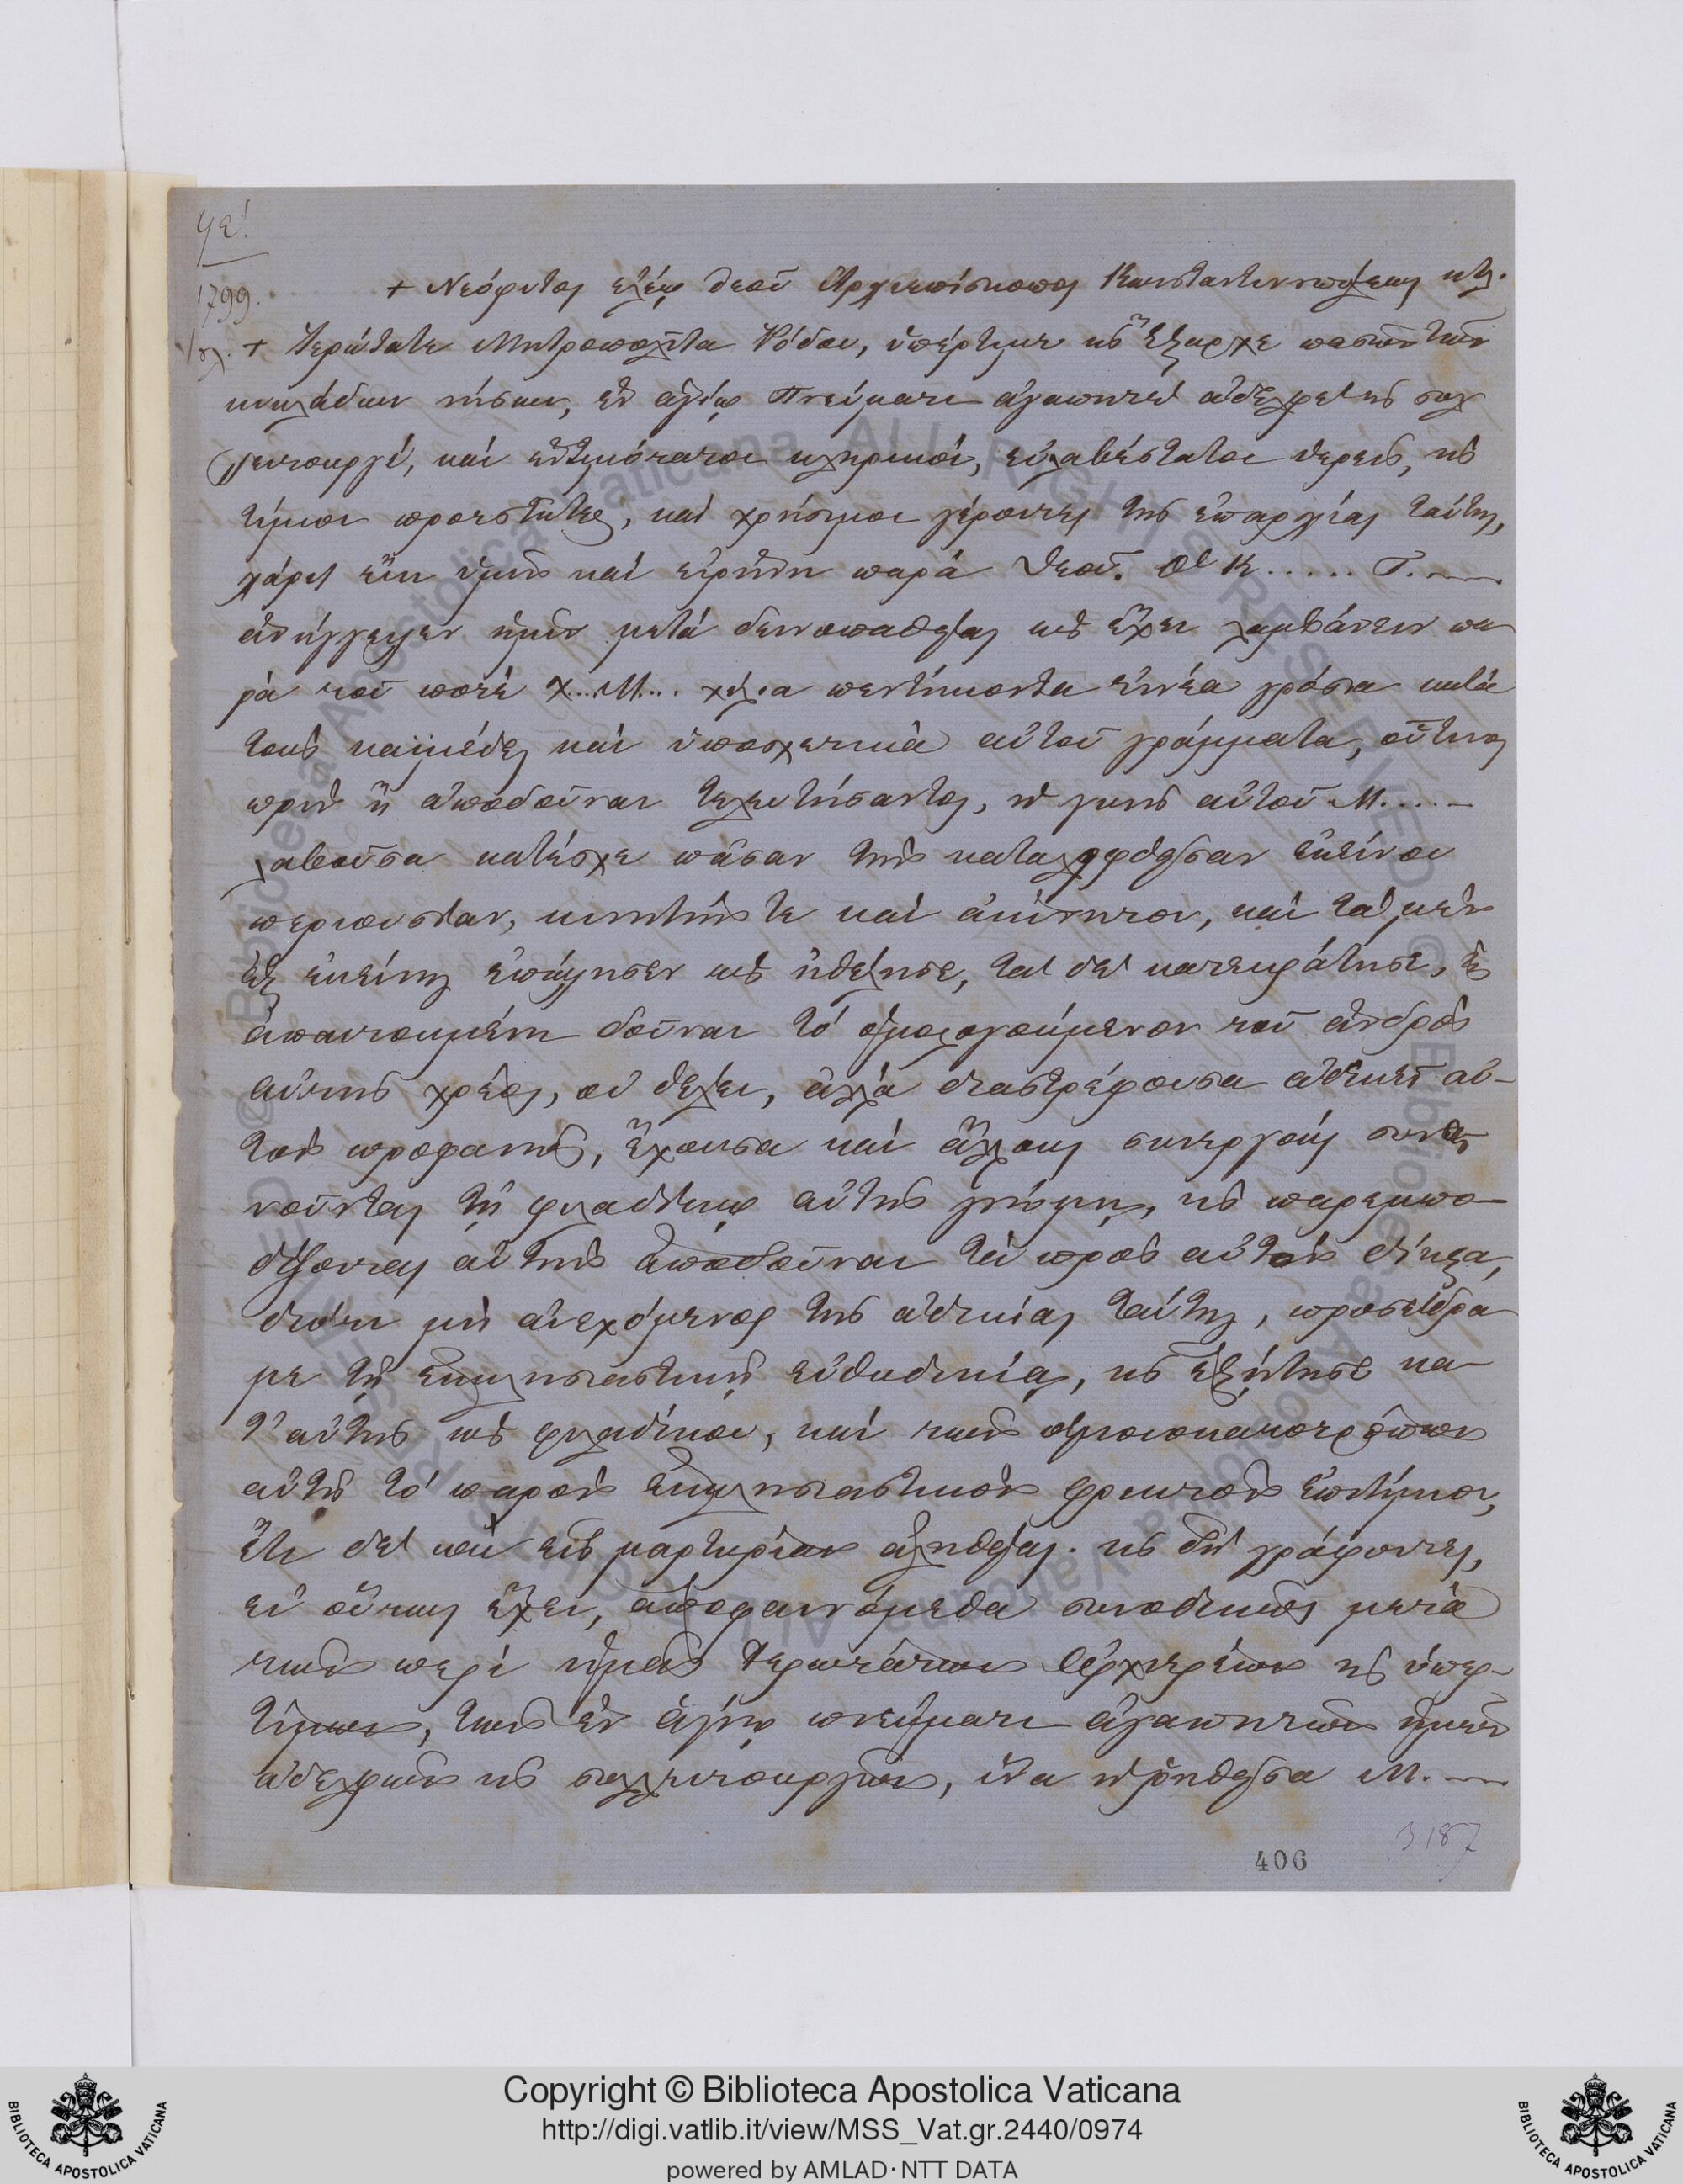 ϟε!
1799.
+ Νεόφυτος ἐλέῳ Θεοῦ Ἀρχιεπίσκοπος Κωνσταντινουπόλεως κτλ.
+ Ἱερώτατε Μητροπολῖτα Ῥόδου, ὑπέρτιμε κ̀ Ἔξαρχε πασῶν τῶν
κυκλάδων νήσων, ἐν ἁγίῳ Πνεύματι ἀγαπητὲ ἀδελφὲ κ̀ συλ
λειτουργέ, καὶ ἐντιμότατοι κληρικοί, εὐλαβέστατοι ἱερεῖς, κ̀
τίμιοι προεστῶτες, καὶ χρήσιμοι γέροντες τῆς ἐπαρχίας ταύτης,
χάρις εἴη ὑμῖν καὶ εἰρήνη παρὰ Θεοῦ. Ὁ Κ..... Γ.....
ἀνήγγειλεν ἡμῖν μετὰ δεινοπαθείας ὡς ἔχει λαμβάνειν πα
ρὰ τοῦ ποτὲ Χ...Μ... χίλια πεντήκοντα ἐννέα γρόσια κατὰ
τοὺς καϊμέδες καὶ ὑποσχετικὰ αὐτοῦ γράμματα, οὗτινος
πρὶν ἢ ἀποδοῦναι τελευτήσαντος, ἡ γυνὴ αὐτοῦ Μ.....
λαβοῦσα κατέσχε πᾶσαν τὴν καταλειφθεῖσαν ἐκείνου
περιουσίαν, κινητήν τε καὶ ἀκίνητον, καὶ τὰ μὲν
ἐξ ἐκείνης ἐπώλησεν ὡς ἠθέλησε, τὰ δὲ κατεκράτησε, κ̀
ἀπαιτουμένη δοῦναι τὸ ὁμολογούμενον τοῦ ἀνδρὸς
αὐτῆς χρέος, οὐ θέλει, ἀλλὰ διαστρέφουσα ἀδικεῖ αὐ-
τὸν προφανῶς, ἔχουσα καὶ ἄλλους συνεργοὺς συναι
νοῦντας τῇ φιλαδίκῳ αὐτῆς γνώμῃ, κ̀ παρεμπο-
δίζοντας αὐτὴν ἀποδοῦναι τὰ πρὸς αὐτὸν δίκαια,
διόπερ μὴ ἀνεχόμενος τῆς ἀδικίας ταύτης, προσέδρα
με τῇ ἐκκλησιαστικῇ εὐθυδικίᾳ, κ̀ ἐξῄτησε κα-
τ' αὐτῆς ὡς φιλαδίκου, καὶ τῶν ὁμοιοκακοτρόπων
αὐτῇ τὸ παρὸν ἐκκλησιαστικὸν φρικτὸν ἐπιτίμιον,
ἔτι δὲ καὶ εἰς μαρτυρίαν ἀληθείας. κ̀ δὴ γράφοντες,
εἰ οὕτως ἔχει, ἀποφαινόμεθα συνοδικῶς μετὰ
τῶν περὶ ἡμᾶς Ἱερωτάτων Ἀρχιερέων κ̀ ὑπερ-
τίμων, τῶν ἐν ἁγίῳ πνεύματι ἀγαπητῶν ἡμῶν
ἀδελφῶν κ̀ συλλειτουργῶν, ἵνα ἡ ῥηθεῖσα Μ.....
3187
406
Copyright © Biblioteca Apostolica Vaticana
http://digi.vatlib.it/view/MSS_Vat.gr.2440/0974
powered by AMLAD·NTT DATA
BIBLIOTECA APOSTOLICA VATICANA
BIBLIOTECA APOSTOLICA VATICANA